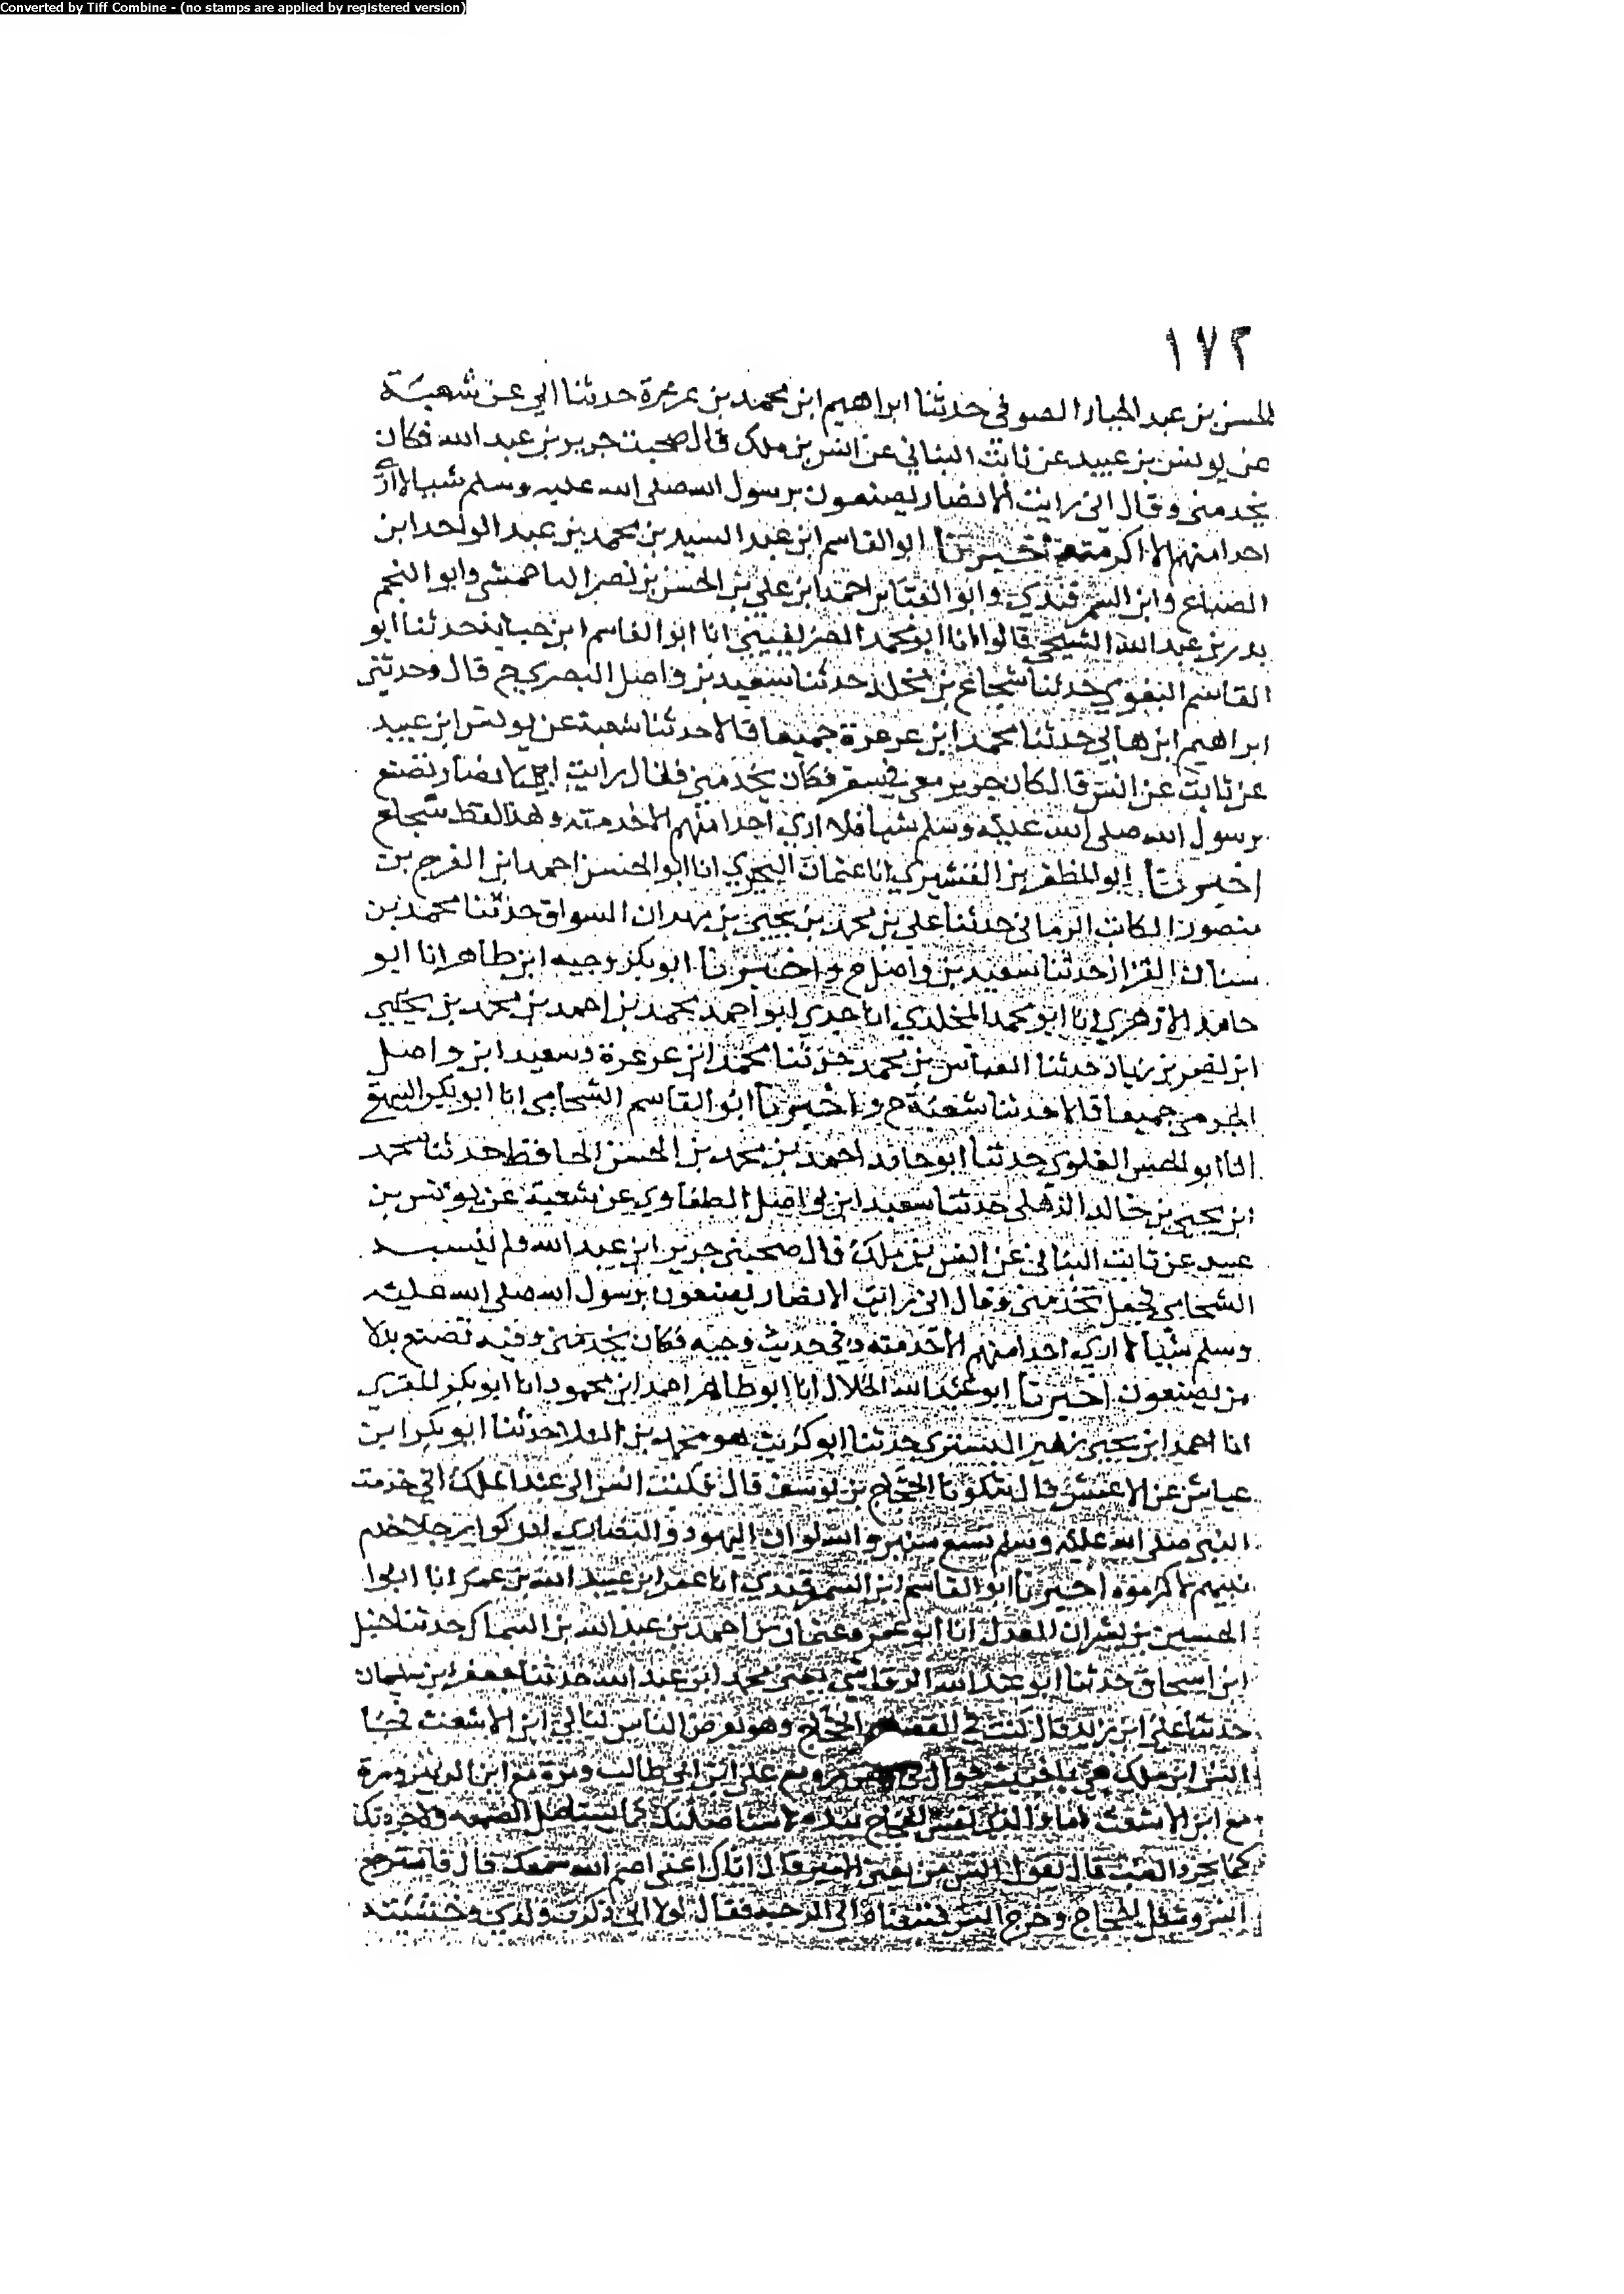 Converted by Tiff Combine - (no stamps are applied by registered version)
١٧٢
الحسن بن عبد الجبار الصوفي حدثنا ابراهيم ابن محمد بن عرعرة حدثنا ابي عن شعبة
عن يونس بن عبيد عن ثابت البناني عن انس بن ملك قال صحبت جرير بن عبد الله فكان
يخدمني وقال اني رايت الانصار يصنعون برسول الله صلى الله عليه وسلم شيا لا ارى
احدا منهم الا اكرمته اخبرنا ابو القاسم ابن عبد السيد بن محمد بن عبد الواحد ابن
الصباغ وابن السمرقندي وابو الفتا بن احمد ابن علي بن الحسن بن نصر وابو النجم
بدر بن عبد الله الشيحي قالوا انا ابو محمد الصريفيني انا ابو القاسم ابن حبابة حدثنا ابو
القاسم البغوي حدثنا شجاع بن مخلد حدثنا سعيد بن واصل البصري ح قال وحدثني
ابراهيم ابن هاني حدثنا محمد ابن عرعرة جميعا قالا حدثنا شعبة عن يونس ابن عبيد
عن ثابت عن انس قال كان جرير معي في سفر فكان يخدمني فقال رايت الانصار تصنع
برسول الله صلى الله عليه وسلم شيا فلا ارى احدا منهم الا خدمته وهذا لفظ شجاع
اخبرنا ابو المظفر بن القشيري انا عثمان البحيري انا ابو الحسن احمد ابن الفرج بن
منصور الكاتب حدثنا علي بن محمد بن يحيى بن مهران السواق حدثنا محمد بن
سنان القزاز حدثنا سعيد بن واصل ح واخبرنا ابو بكر وجيه ابن طاهر انا ابو
حامد الازهري انا ابو محمد المخلدي انا جدي ابو احمد محمد بن احمد بن محمد بن يحيى
ابن زياد حدثنا العباس بن محمد حدثنا محمد ابن عرعرة وسعيد ابن واصل
الجرمي جميعا قالا حدثنا شعبة ح واخبرنا ابو القاسم الشحامي انا ابو بكر البيهقي
انا ابو الحسن العلوي حدثنا ابو حامد احمد بن محمد بن الحسن الحافظ حدثنا محمد
ابن يحيى بن خالد الذهلي حدثنا سعيد ابن واصل الطفاوي عن شعبة عن يونس بن
عبيد عن ثابت البناني عن انس بن ملك قال صحبني جرير ابن عبد الله ولم ينسبه
الشحامي فجعل يخدمني وقال اني رايت الانصار يصنعون برسول الله صلى الله عليه
وسلم شيا لا ارى احدا منهم الا خدمته وفي حديث وجيه فكان يخدمني وفيه تصنع بدلا
من يصنعون اخبرنا ابو عبد الله الخلال انا ابو طاهر احمد ابن محمود انا ابو بكر المقري
انا احمد ابن يحيى بن زهير التستري حدثنا ابو كريب هو محمد بن العلا حدثنا ابو بكر ابن
عياش عن الاعمش قال شكونا الحجاج بن يوسف قال فكتب انس الى عبد الملك اني خدمت
النبي صلى الله عليه وسلم تسع سنين والله لو ان اليهود والنصارى ادركوا رجلا خدم
نبيهم لاكرموه اخبرنا ابو القاسم ابن السمرقندي انا عمر ابن عبيد الله بن عمر انا ابو
الحسين بن بشران المعدل انا ابو عمرو عثمان بن احمد بن عبد الله بن السماك حدثنا حنبل
ابن اسحاق حدثنا ابو عبد الله الرقاشي يعني محمد ابن عبد الله حدثنا جعفر ابن سليمان
حدثنا علي ابن زيد قال كنت في القصر الحجاج وهو يعرض الناس ليالي ابن الاشعث فجا
انس ابن ملك جوال في مع علي ابن ابي طالب ومرة مع ابن الزبير ومرة
مع ابن الاشعث اما والذي نفس الحجاج بيده لاستاصلنك كما تستاصل الصمغة ولاجردنك
كما يجرد الضب قال يقول انس من يعني الامير قال اياك اعني اصم الله سمعك قال فاسترجع
انس وشغل الحجاج وخرج انس فتبعناه الى الرحبة فقال لولا اني ذكرت ولدي وخشيته